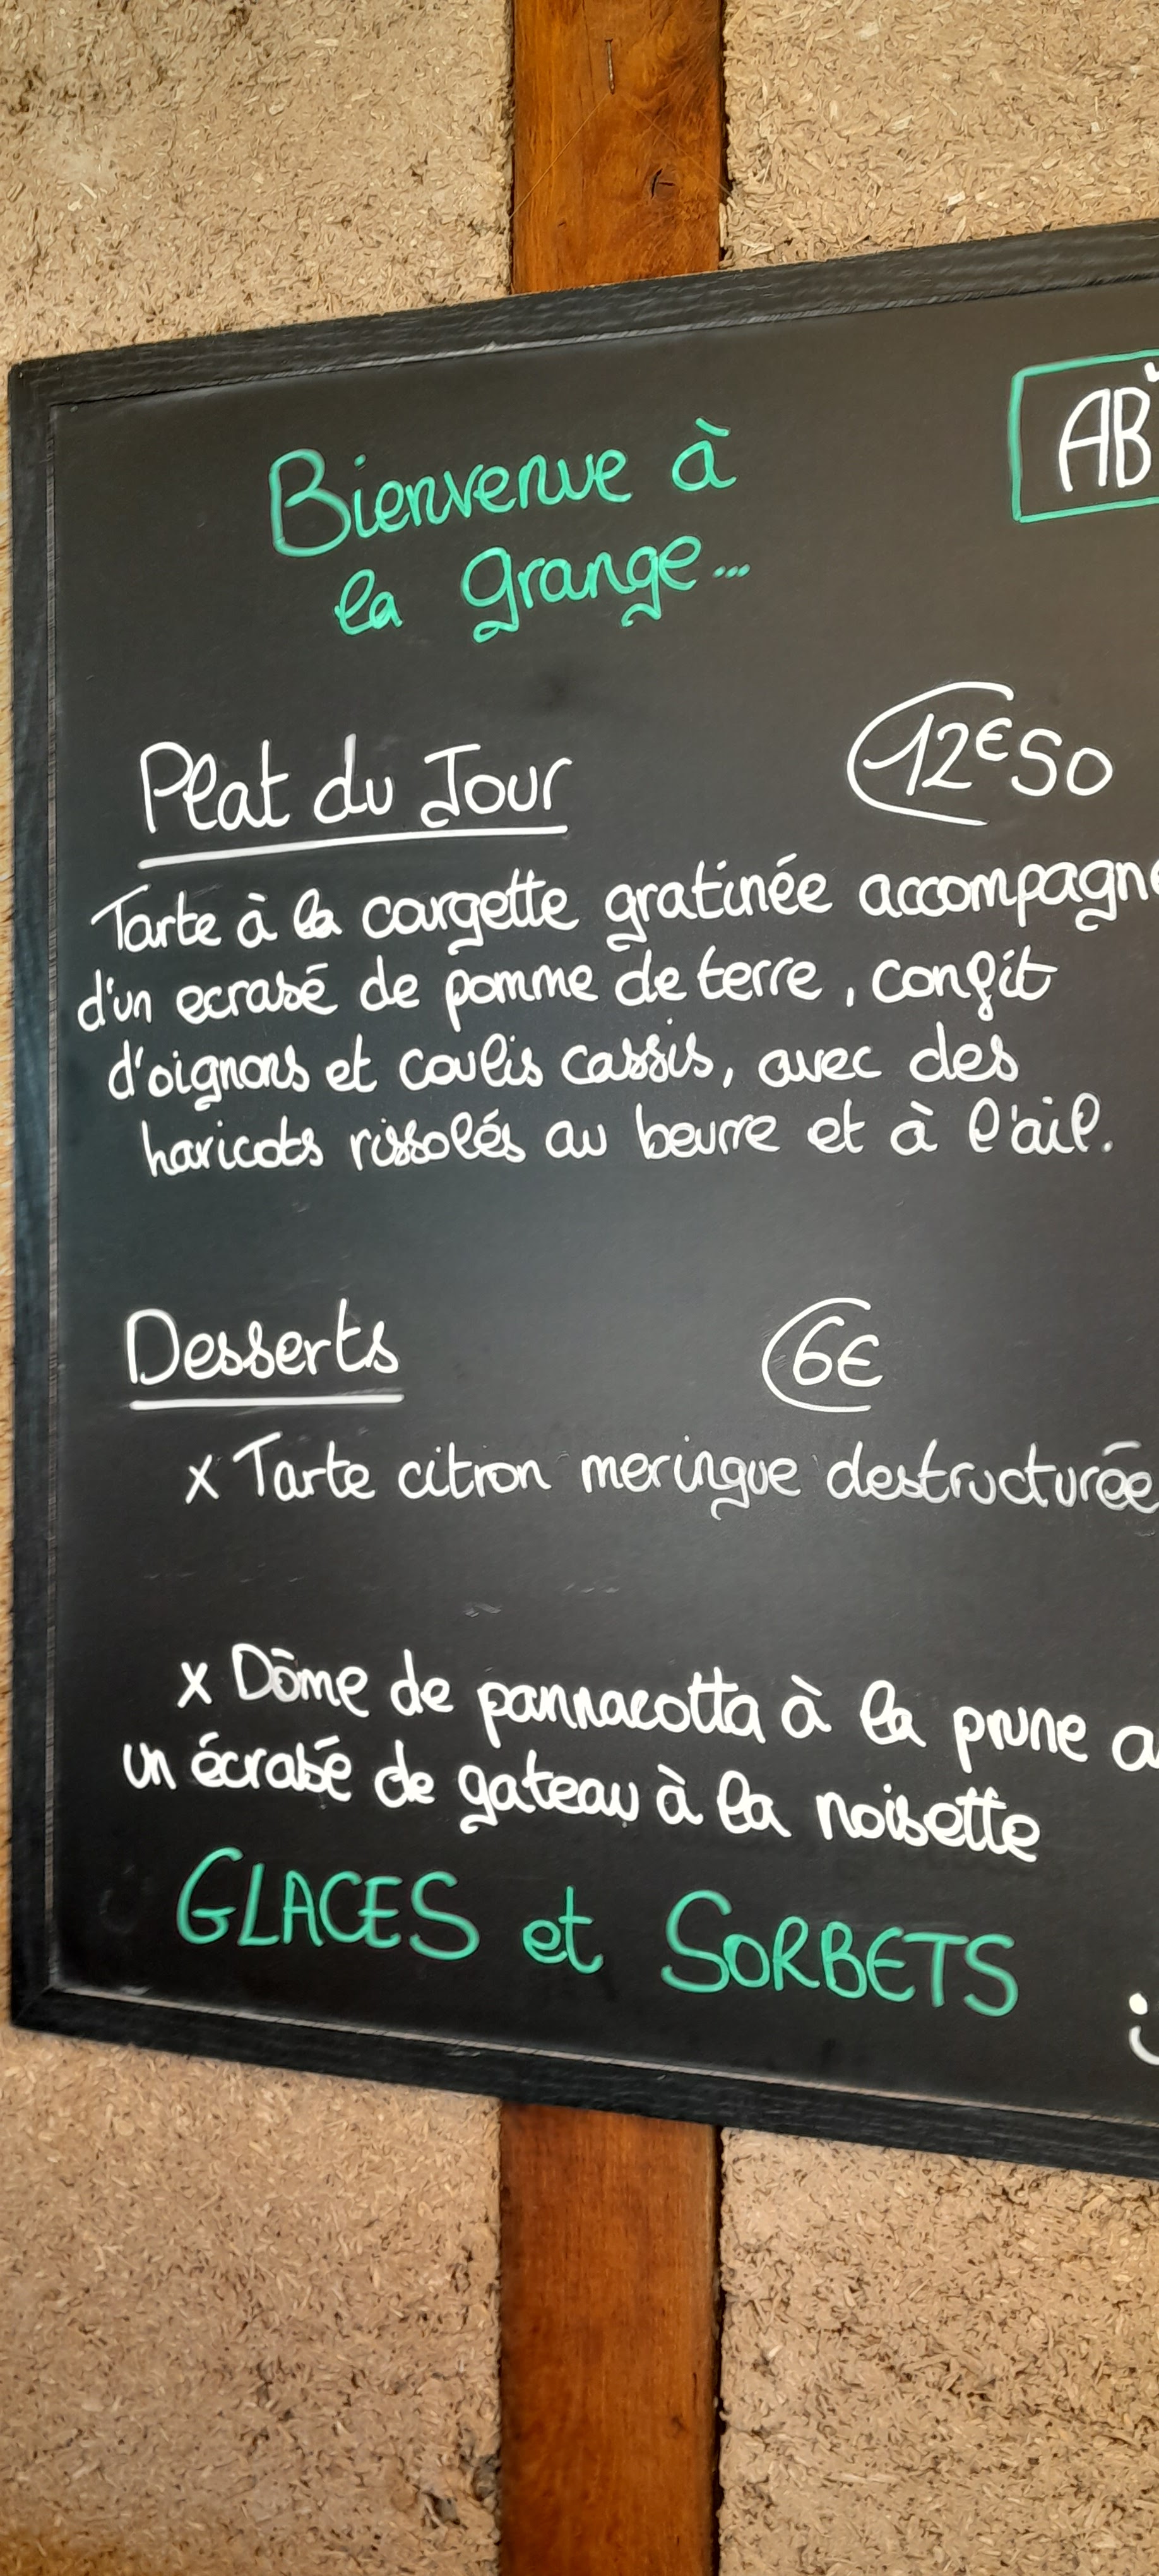 Bienvenue à
la grange...
AB
Plat du Jour
12€50
Tarte à la courgette gratinée accompagné
d'un ecrasé de pomme de terre, confit
d'oignons et coulis cassis, avec des
haricots rissolés au beurre et à l'ail.
Desserts
6€
x Tarte citron meringue destructurée
x Dôme de pannacotta à la prune
un écrasé de gateau à la noisette
GLACES et SORBETS